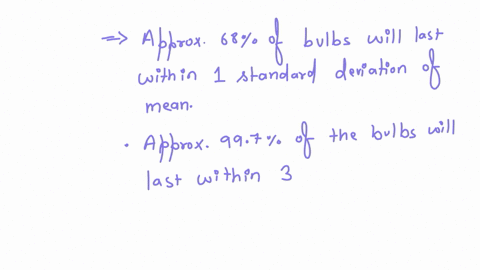 => Approx. 68% of bulbs will last
within 1 standard deviation of
mean.
• Approx. 99.7% of the bulbs will
last within 3